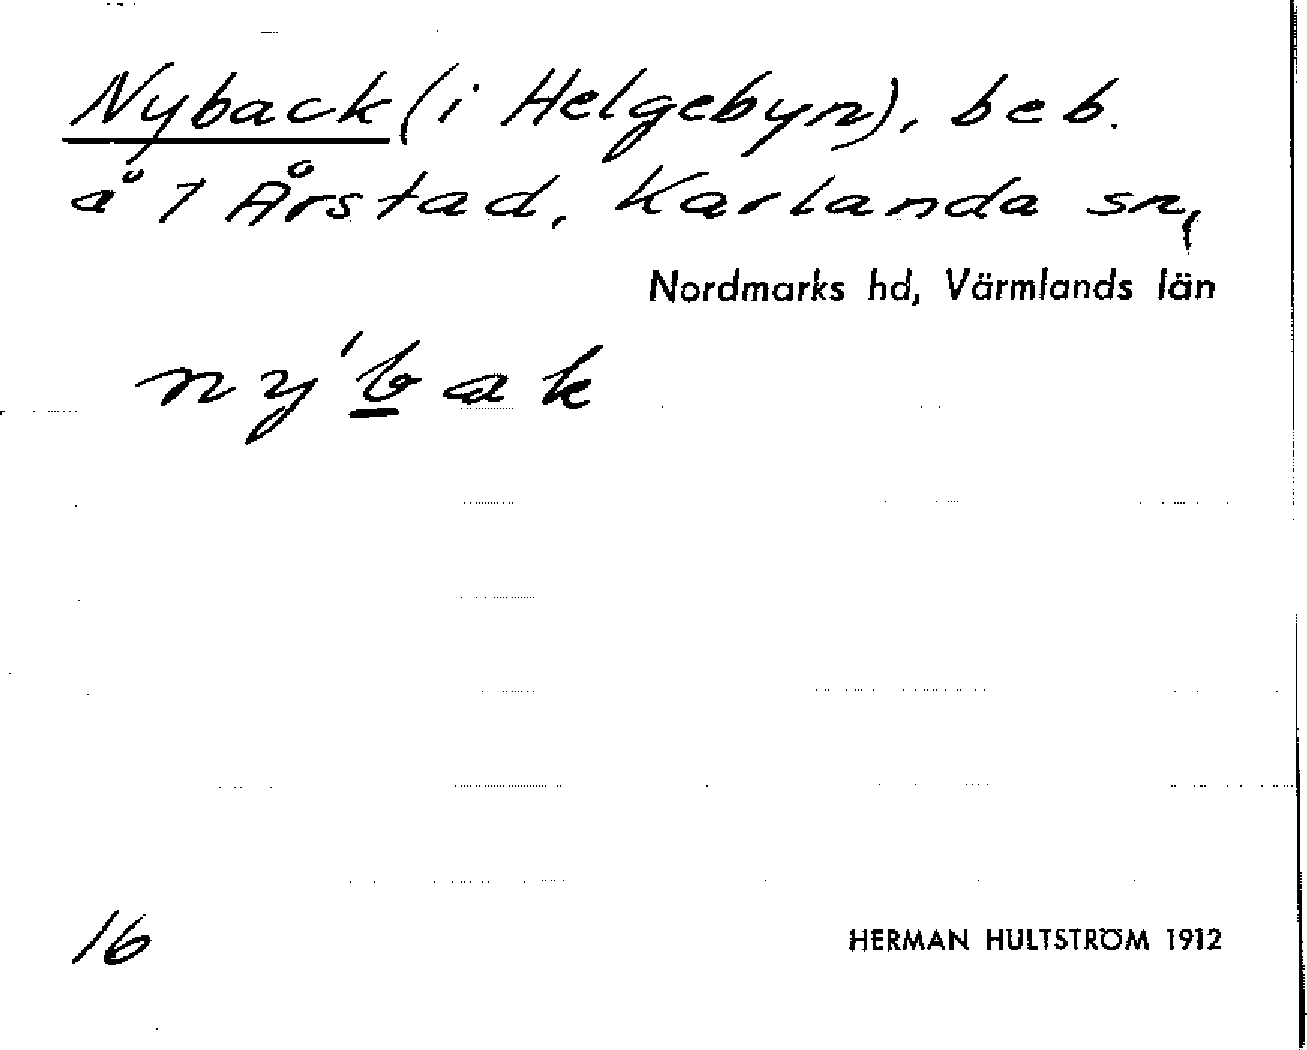 Nyback (i Helgebyn), beb.
å 7 Årstad, Karlanda sn,
Nordmarks hd, Värmlands län
ny'bak
16
HERMAN HULTSTRÖM 1912